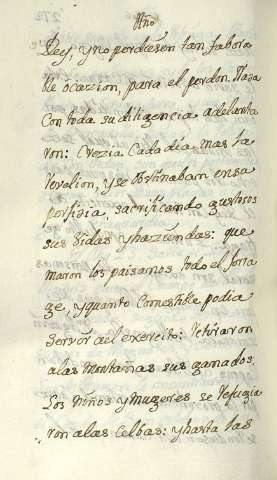 Año
Rey, y no perdiesen tan fabora
ble ocazzion, para el perdon. Nada
Con toda su diligencia adelanta
ron: Crezia Cada dia mas la
Revelion, y se obstinaban en su
perfidia, sacrificando gustosos
sus Vidas y hazziendas: que
maron los paisanos todo el forra
ge, y quanto Comestible podia
servir al exercito: Retiraron
alas Montañas sus ganados:
Los Niños y Mugeres se Refugia
ron alas Celbas: y hasta las